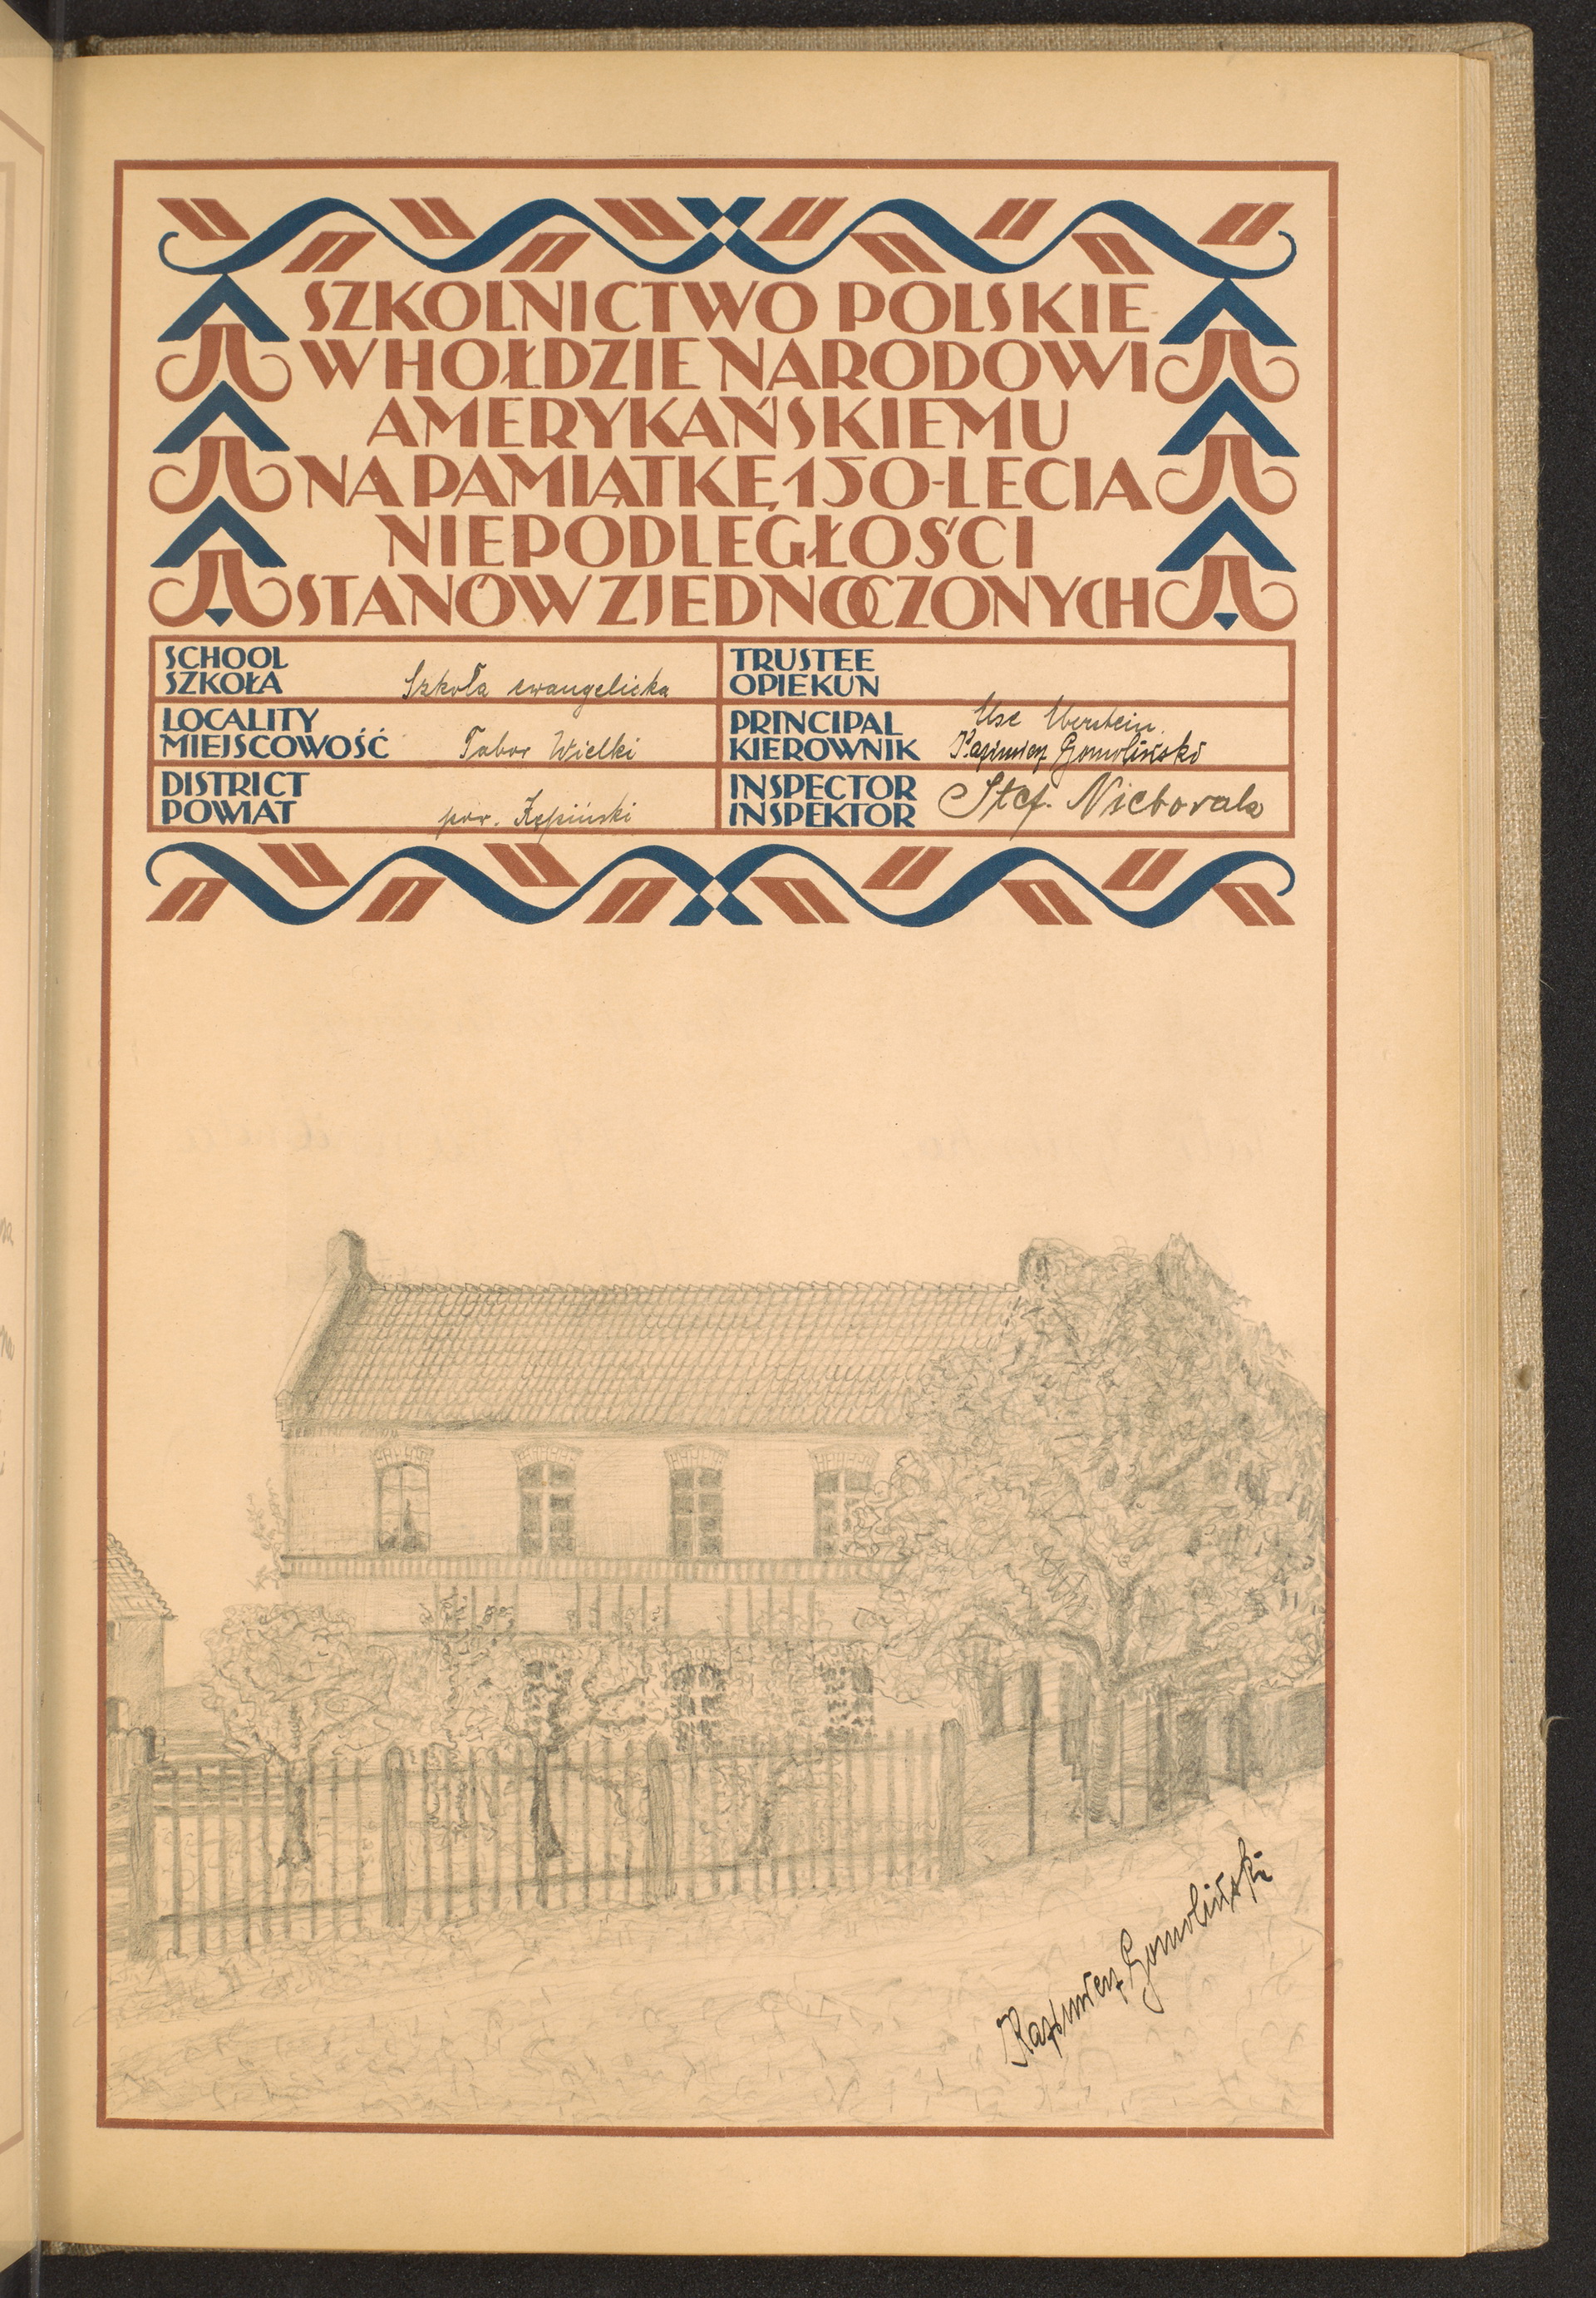 SZKOLNICTWO POLSKIE
W HOŁDZIE NARODOWI
AMERYKAŃSKIEMU
NA PAMIĄTKĘ 150-LECIA
NIEPODLEGŁOŚCI
STANÓW ZJEDNOCZONYCH
SCHOOL
SZKOŁA Szkoła ewangelicka
LOCALITY
MIEJSCOWOŚĆ Tabor Wielki
DISTRICT
POWIAT pow. Kępiński
TRUSTEE
OPIEKUN
PRINCIPAL
KIEROWNIK Kazimierz Gomoliński
INSPECTOR
INSPEKTOR Stef. Nieborala
Kazimierz Gomoliński